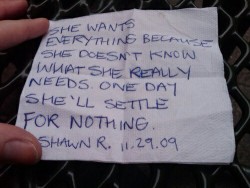 SHE WANTS
EVERYTHING BECAUSE
SHE DOESN'T KNOW
WHAT SHE REALLY
NEEDS. ONE DAY
SHE'LL SETTLE
FOR NOTHING.
SHAWN R. 11.29.09